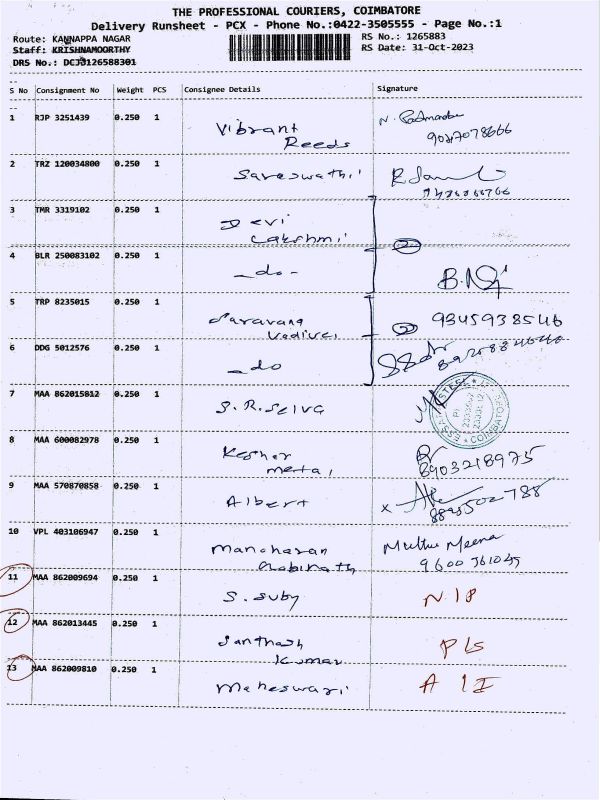 THE PROFESSIONAL COURIERS, COIMBATORE
Delivery Runsheet - PCX - Phone No.:0422-3505555 - Page No.:1
Route: KANNAPPA NAGAR
RS No.: 1265883
Staff: KRISHNAMOORTHY
RS Date: 31-Oct-2023
DRS No.: DCJJ126588301
S No Consignment No Weight PCS Consignee Details Signature
1 RJP 3251439 0.250 1 Vibrant Reeds
2 TRZ 120034800 0.250 1 Sareswathi
3 TMR 3319102 0.250 1 Devi Lakshmi 2
4 BLR 250083102 0.250 1 -do-
5 TRP 8235015 0.250 1 Saravana Vadivel 2 9345938546
6 DDG 5012576 0.250 1 -do
7 MAA 862015812 0.250 1 S.R.Selva
COIMBATORE
8 MAA 600082978 0.250 1 Keshar metal 8903218975
9 MAA 570870858 0.250 1 Albert x
10 VPL 403106947 0.250 1 Manoharan Muthu Meena
11 MAA 862009694 0.250 1 S. Suby N IP
12 MAA 862013445 0.250 1 Santhosh Kumar P LS
13 MAA 862009810 0.250 1 Maheswari A II